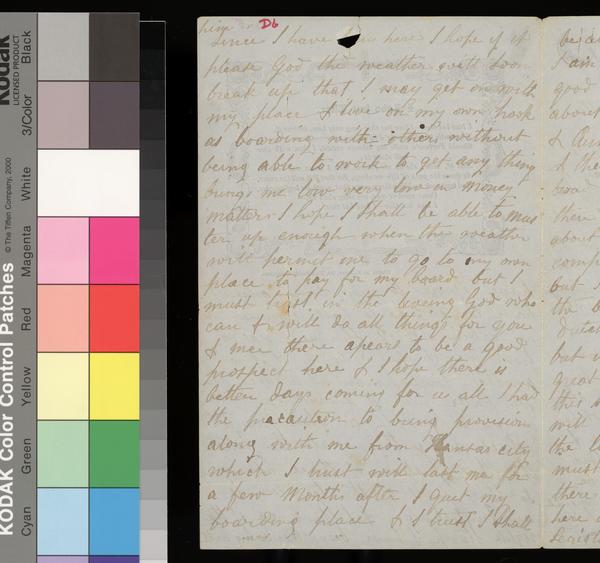 Kodak
LICENSED PRODUCT
Black
3/Color
White
Magenta
Red
Yellow
Green
Cyan
KODAK Color Control Patches
© The Tiffen Company, 2000
him D6
since I have here I hope if it
please God the weather will soon
break up that I may get on with
my place & live on my own hook
as boarding with others without
being able to work to get any thing
brings me low very low in money
matters I hope I shall be able to mus
ter up enough when the weather
will permit me to go to my own
place to pay for my board but I
must trust in the liveing God who
can & will do all things for you
& mee there apears to be a good
prospect here & I hope there is
better days coming for us all I had
the pracaution to bring provision
along with me from Kansas city
which I trust will last me for
a few months after I quit my
boarding place & I trust I shall
I am
good
about
&
&
boar
there
about
comp
but
the b
but
great
this
will
the l
must
there
here